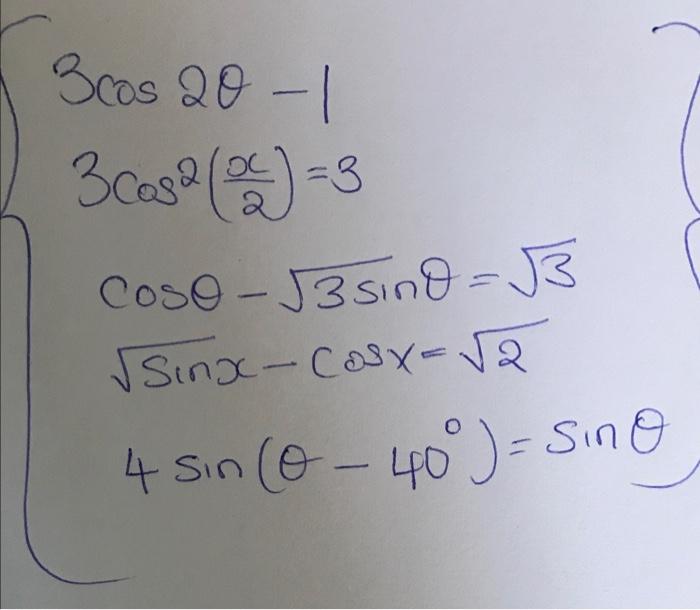 3cos 2θ - 1
3cos²(x/2) = 3
cosθ - √3sinθ = √3
√sinx - cosx = √2
4 sin(θ - 40°) = sinθ